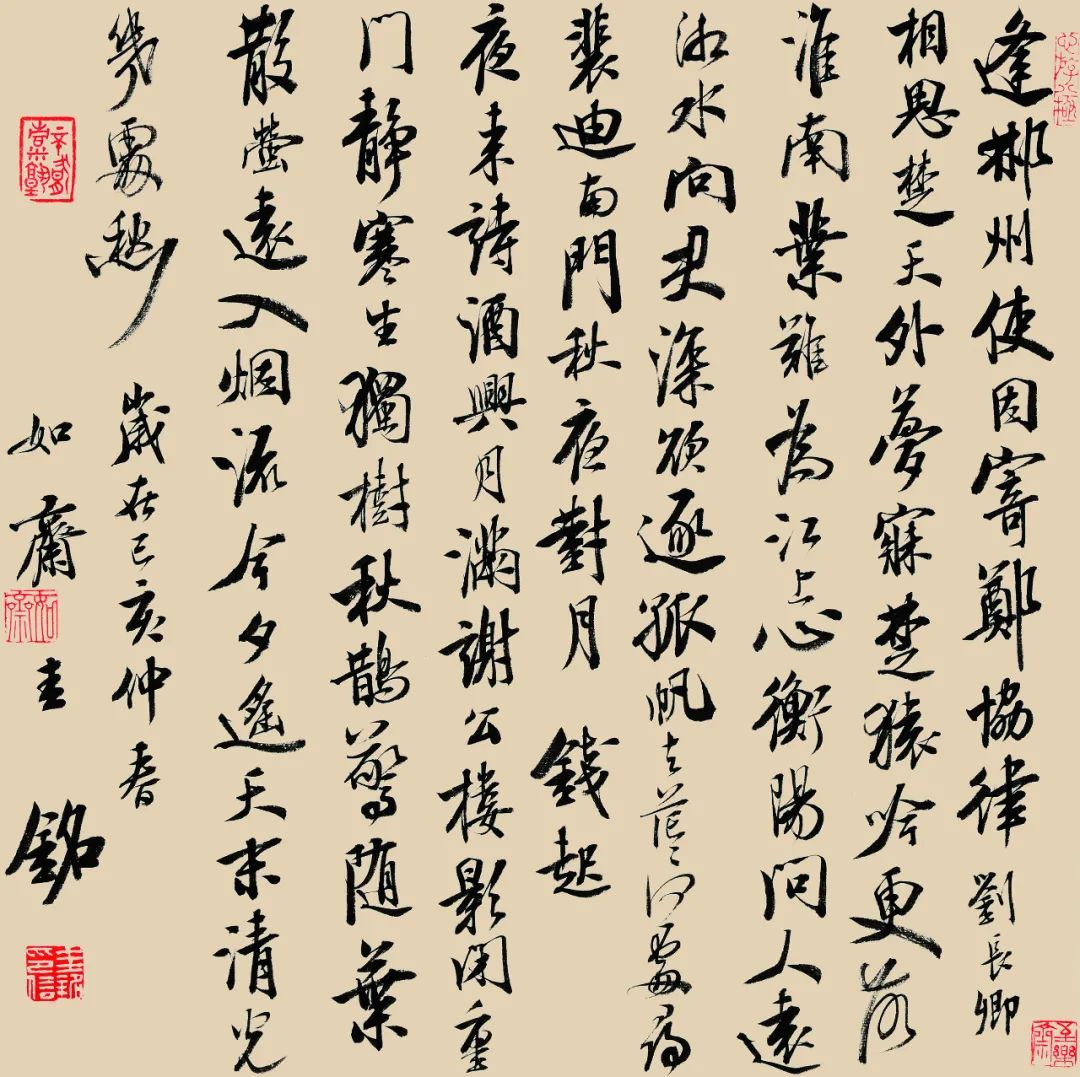 逢郴州使因寄鄭協律 劉長卿
相思楚天外夢寐楚猿吟更落
淮南葉難為江上心衡陽問人遠
湘水向君深欲逐孤帆去茫〻何處尋
裴迪南門秋夜對月 錢起
夜来詩酒興月滿謝公樓影閉重
門靜寒生獨樹秋鵲驚随葉
散螢遠入烟流今夕遙天末清光
幾處愁 歲在己亥仲春
如齋主 銘
如齋